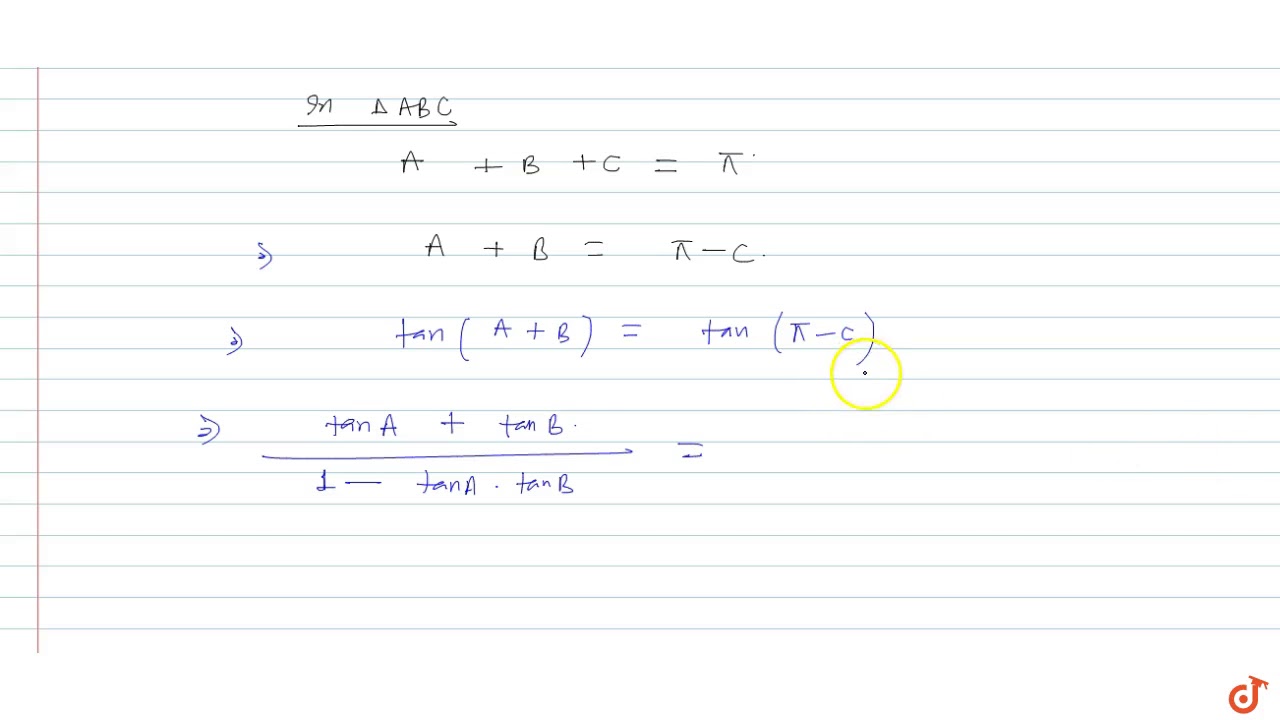 In Δ ABC
A + B + C = π.
⇒ A + B = π - C.
⇒ tan (A + B) = tan (π - C)
⇒ tanA + tanB. / 1 - tanA . tanB =